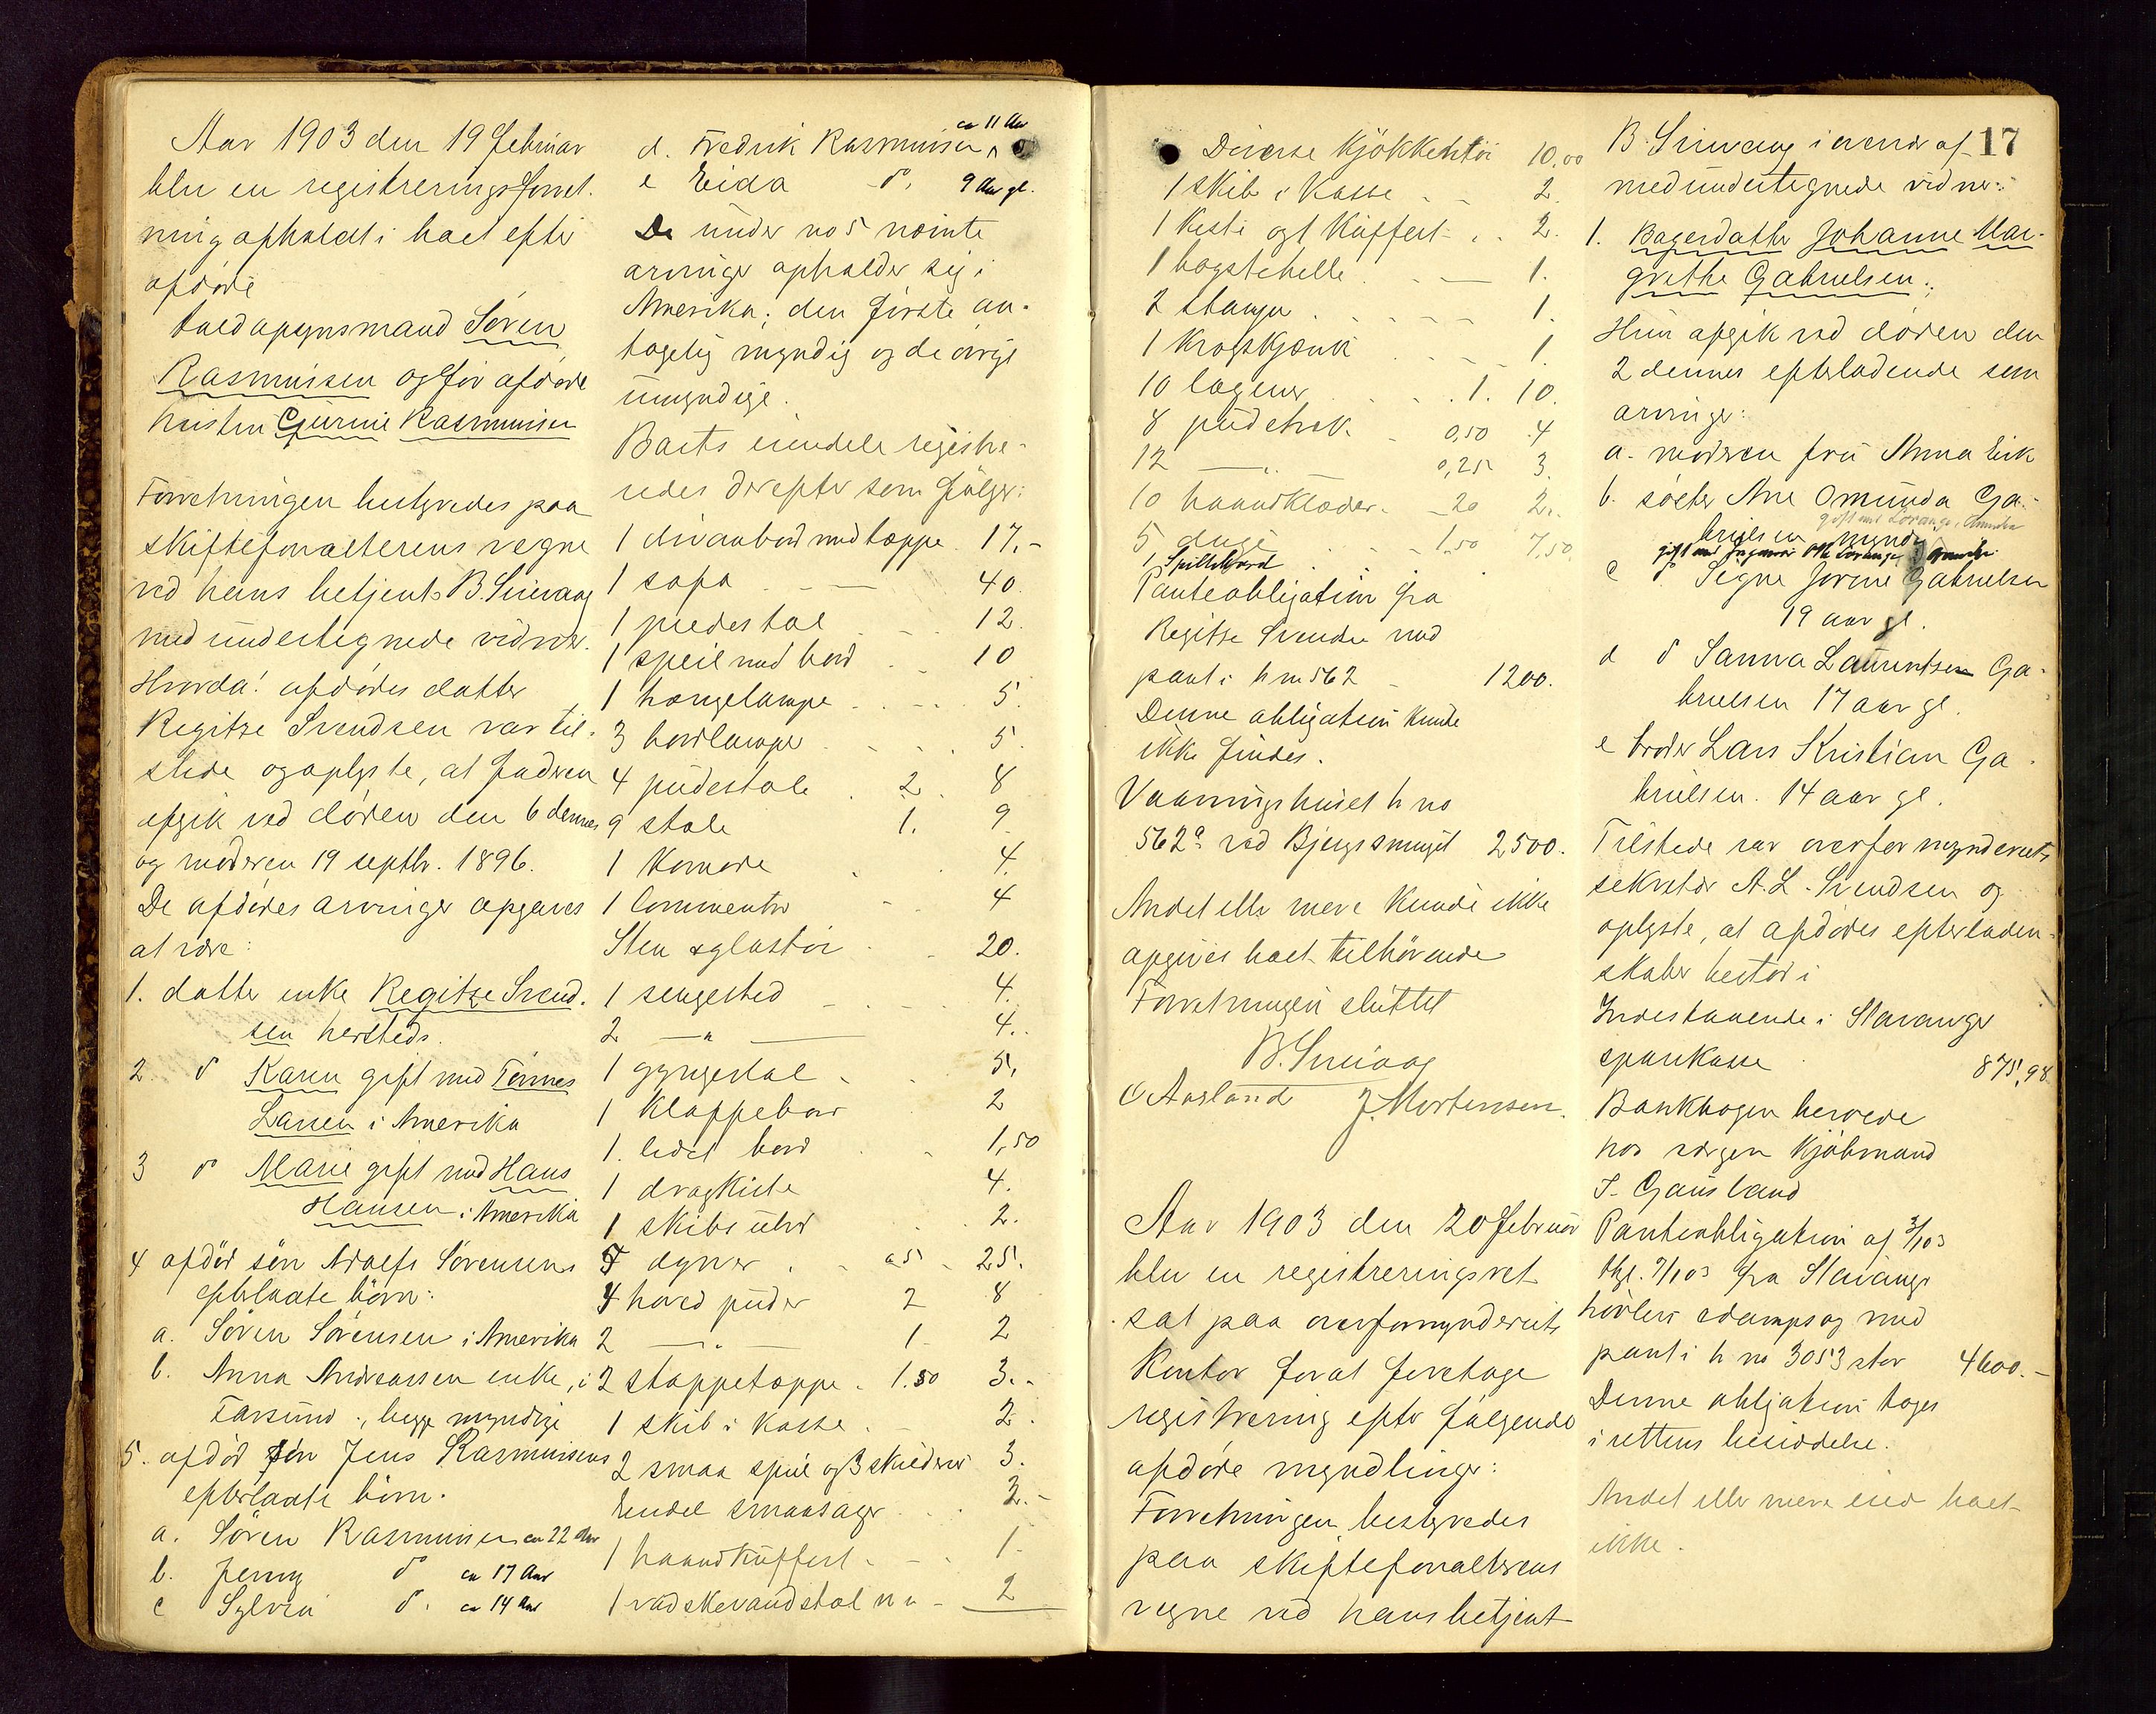 Aar 1903 den 19 februar
blev en registreringsforret-
ning afholdt i boet efter
afdøde
toldopsynsmand Søren
Rasmussen og før afdøde
hustru Gurine Rasmussen
Forretningen bestyredes paa
skifteforvalterens vegne
ved hans betjent B. Sinvaag
med undertegnede vidner.
Hvorda! afdødes datter
Regitze Svendsen var til-
stede og oplyste, at faderen
afgik ved døden den 6 dennes
og moderen 19 septbr. 1896.
De afdødes arvinger opgaves
at være:
1. datter enke Regitze Svend-
sen hersteds.
2 d Karen gift med Tønnes
Larsen i Amerika
3 d Marie gift med Hans
Hansen i Amerika
4 afdød søn Adolfs Sørensens
efterladte børn:
a. Søren Sørensen i Amerika
b. Anna Andreassen enke, i
Farsund, begge myndige
5. afdød søn Jens Rasmussens
efterladte børn.
a. Søren Rasmussen ca 22 Aar
b. Jenny d ca 17 Aar
c Sylvia d. ca 14 Aar
d. Fredrik Rasmussen ca 11 Aar
e Eida d. 9 Aar gl.
De under no 5 nævnte
arvinger opholder sig i
Amerika; den første an-
tagelig myndig og de øvrige
umyndige.
Boets eiendele registre-
redes derefter som følger:
1 divanbord med tæppe 17.-
1 sofa 40.
1 piedestal 12.
1 speil med bord 10
1 hængelampe 5.
3 bordlamper 5.
4 pudestole 2. 8
9 stole 1. 9
1 Komode 4.
1 Commentor 4
Sten & glastøi 20.
1 sengested 4.
2 — " — 4.
1 gyngestol 5,
1 Klappebord 2
1. lidet bord 1,50
1 dragkiste 4.
1 skibsuhr 2.
5 dyner a 5 25.
4 hoved puder 2 8
2 — " — 1 2
2 stoppetæppe 1.50 3.-
1 skib i Kasse 2.
2 smaa speil og 3 skilderier 3.
Endel smaasager 2.-
1 haandkuffert 1.
1 vadskevandstol 2
Diverse Kjøkkentøi 10,00
1 skib i Kasse 2.
1 Kiste og 1 Kuffert 2.
1 bogstehelle 1.
2 stamper 1.
1 Krogskjænk 1.
10 lagener 1. 10.
8 pudetræk 0,50 4
12 — " — 0,25 3.
10 haandklæder 20 2.
5 duge 1,50 7,50
1 Spillebord
Panteobligation fra
Regitze Svendsen med
pant i h no 562 1200.
Denne obligation kunde
ikke findes.
Vaaningshuset h no
562a ved Bjergsmuget 2500.
Andet eller mere kunde ikke
opgives boet tilhørende
Forretningen sluttet
B. Sinvaag
O Aasland J. Mortensen.
Aar 1903 den 20 februar
blev en registreringsret
sat paa overformynderiets
Kontor forat foretage
registrering efter følgende
afdøde myndlinger:
Forretningen bestyredes
paa skifteforvalterens
vegne ved hans betjent
17
B. Sinvaag i overvær af
medundertegnede vidner:
1. Bagerdatter Johanne Mar-
grethe Gabrielsen.
Hun afgik ved døden den
2 dennes efterladende som
arvinger:
a. moderen fru Anna Eik
b. søster Ane Omunda Ga-
brielsen myndig
c d Signe Jorine Gabrielsen
19 aar gl.
d d Sanna Lauentsen Ga-
brielsen 17 aar gl.
e broder Lars Kristian Ga-
brielsen. 14 aar gl.
Tilstede var overformynderiets
sekretær A. L. Svendsen og
oplyste, at afdødes efterladen-
skaber bestod i
Indestaaende i Stavanger
sparekasse 875,98
Bankbogen beroede
hos værgen Kjøbmand
S. Gausland
Panteobligation af 3/1 03
thgl. 7/1 03 fra Stavanger
høvleri & dampsag med
pant i h no 3053 stor 4600.-
Denne obligation toges
i rettens besiddelse.
Andet eller mere eied boet
ikke.